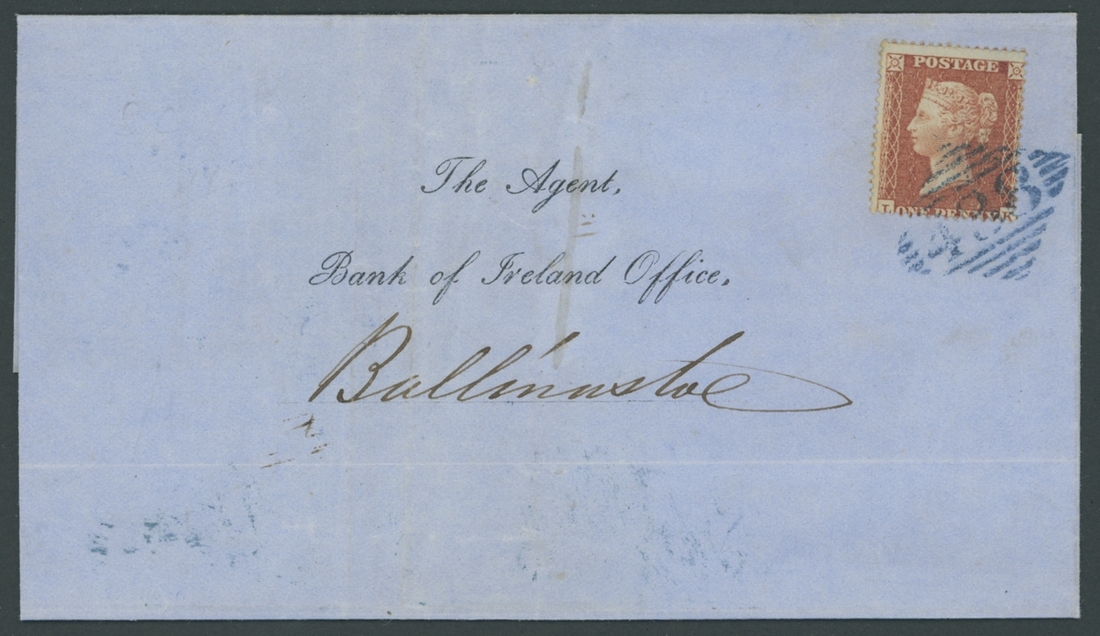 POSTAGE
The Agent,
L ONE PENNY K
Bank of Ireland Office.
Ballinasloe